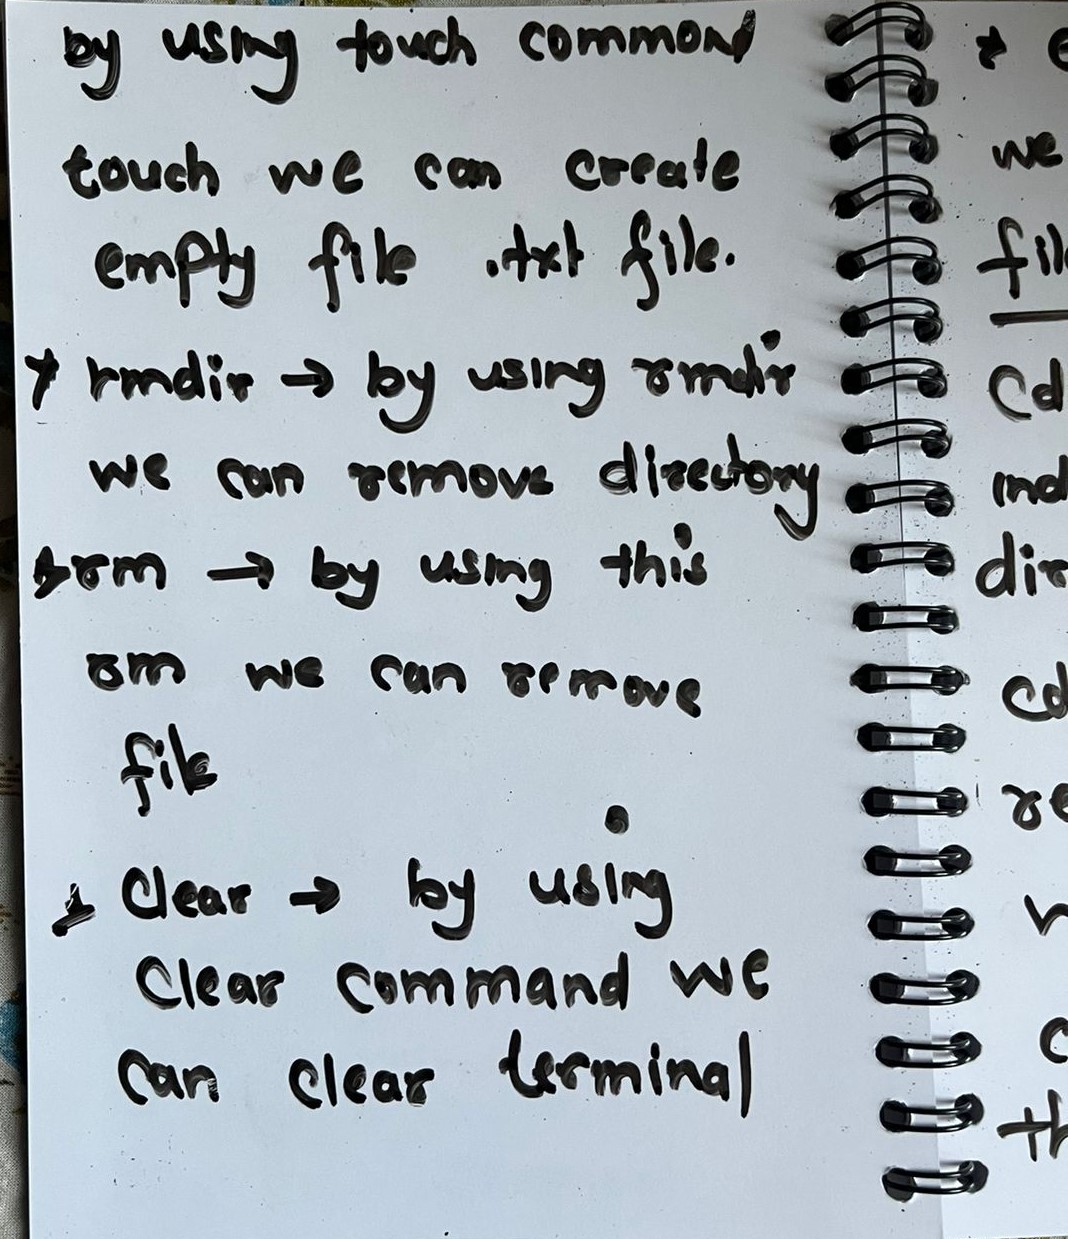 by using touch command
touch we can create
empty file .txt file.
* rmdir → by using rmdir
we can remove directory
* rm → by using this
rm we can remove
file
* Clear → by using
Clear command we
can clear terminal
*
we
Cd
cd